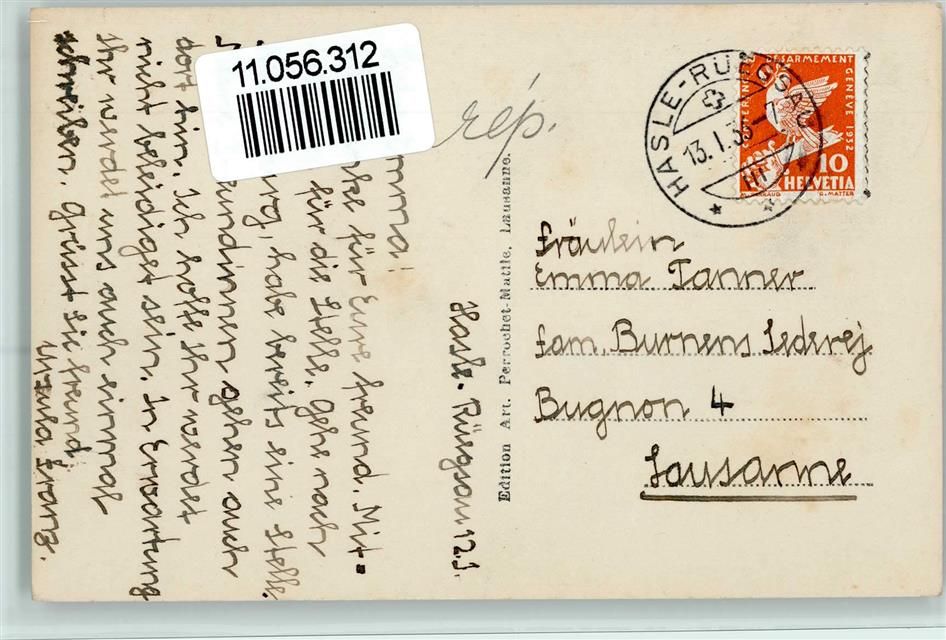 11.056.312
rép.
HASLE-RÜEGSAU
13.I.33-7
DÉSARMEMENT GENÈVE 1932
10
HELVETIA
G. MATTER
Fräulein
Emma Tanner
fam. Burnens Lederej
Bugnon 4
Lausanne
Edition Art. Perrochet-Matile. Lausanne.
Hasle-Rüegsau 12.I.
Emma!
für Eure freund. Mit-
für die Stelle. Gehe nach
habe bereits eine Stelle.
Freundinnen gehen auch
dort hin. Ich hoffe Ihr werdet
nicht beleidigt sein. In Erwartung
Ihr werdet uns auch einmal
schreiben. Grüsst Sie freund.
Franz.